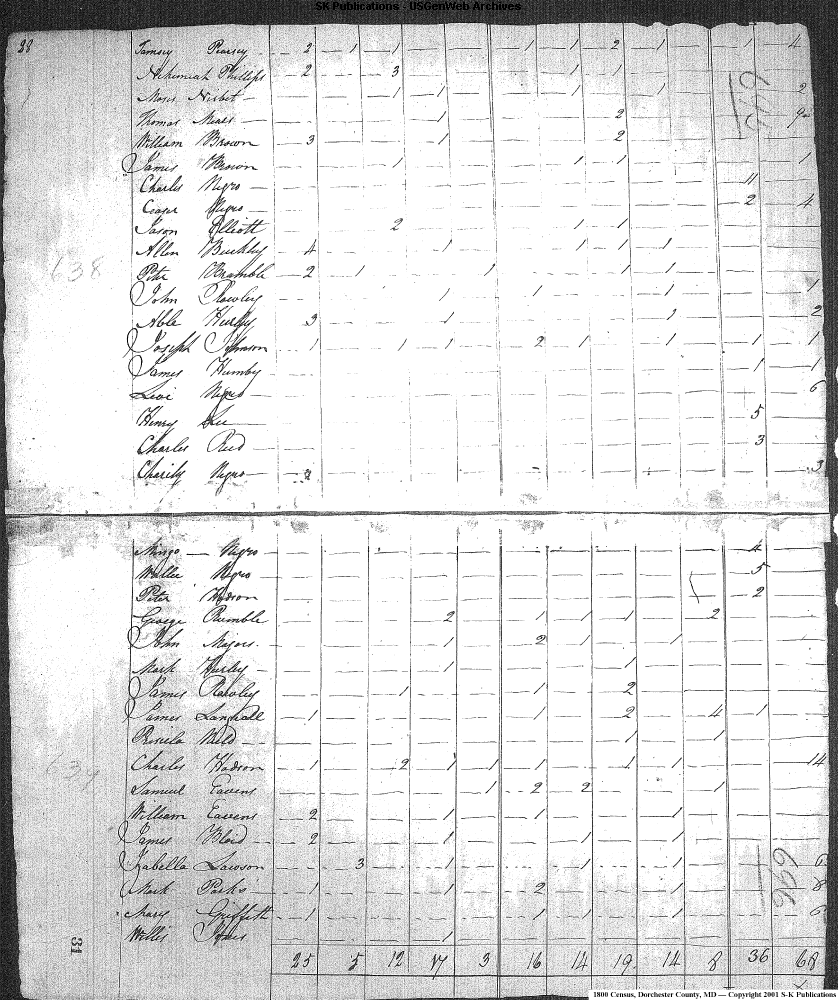 SK Publications - USGenWeb Archives
28
Tamsey Pearsey 2 1 1 1 1 2 1 1 4
Nehemiah Phillips 2 3 1 1
Moses Nisbet 1 1 1 2
Thomas Mears 1 2
William Brown 3 1 2
James Brown 1 1 1 1
Charles Negro 11
Ceaser Negro 2 4
Jason Elliott 2 1 1
Allen Buckley 4 1 1 1 1
638
Peter Bramble 2 1 1 1 1
John Rawley 1 1 1 1
Able Hurley 3 1 1 2
Joseph Johnson 1 1 1 2 1 1 1 1
James Humby 1 1
Levi Negro 6
Henry Lee 5
Charles Reed 3
Charity Negro 3
Mingo Negro 4
Negro 5
Peter Hodson 2
George Rumble 2 1 1 1 2
John Majors 1 2 1 1
Mark Hurley 1 1
James Rawley 1 1 2
James Langrall 1 1 2 4 1
1 1
639
Charles Hodson 1 2 1 1 1 1 1 14
Samuel Eavens 1 2 2 1
William Eavens 2 1 1 1
James 2 1 1 1
Isabella Lawson 3 1 1 1
Mark Parks 1 1 2 1 8
Mary Griffith 1 1 1 1 6
Willis Jones 1
696
31
25 5 12 17 3 16 14 19 14 8 36 68
1800 Census, Dorchester County, MD — Copyright 2001 S-K Publications